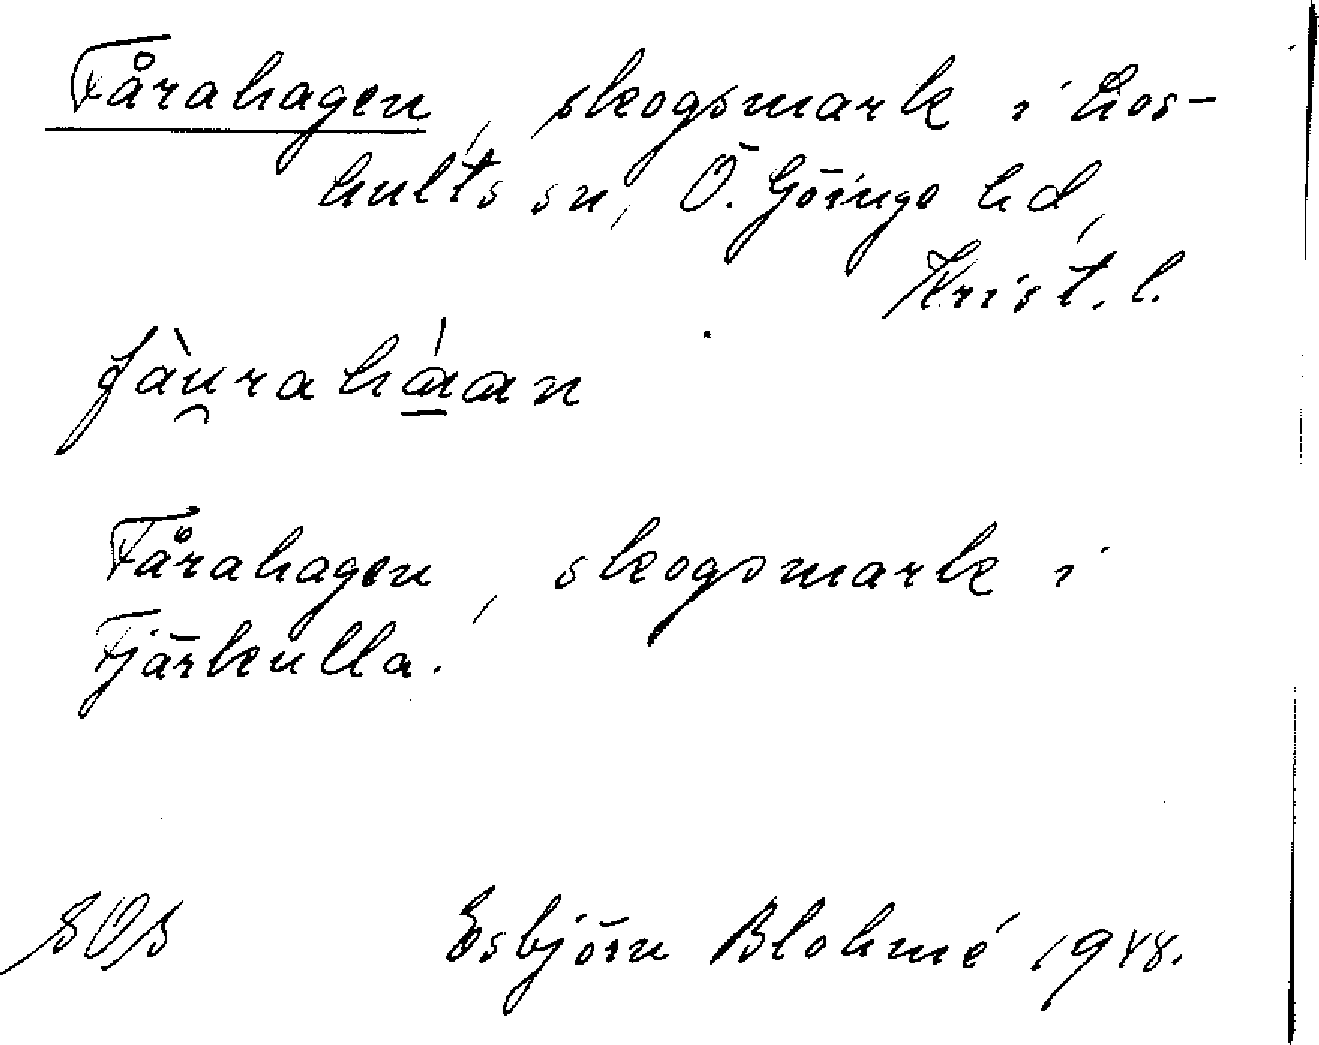 Fårahagen, skogsmark i Los-
hults sn, Ö. Göinge hd,
Krist. l.
fàu̯rahá̱an
Fårahagen, skogsmark i
Fjärkulla.
SOS Esbjörn Blohmé 1948.